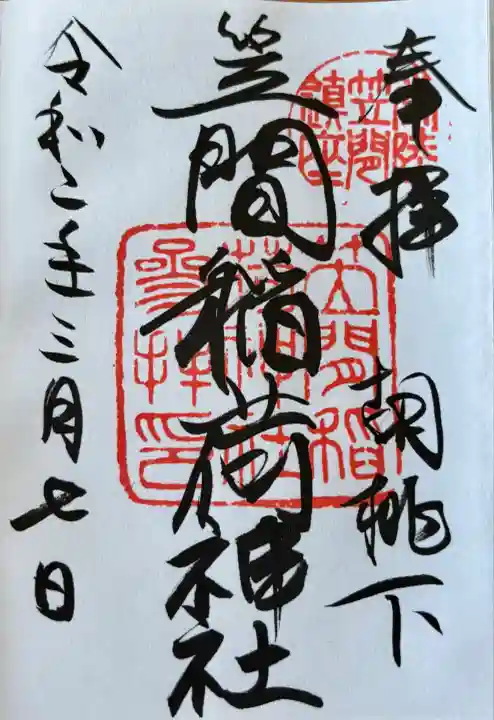 奉拝 胡桃下
笠間稲荷神社
令和二年三月七日
常陸
笠間
鎮座
笠間稲
荷神社
参拝印